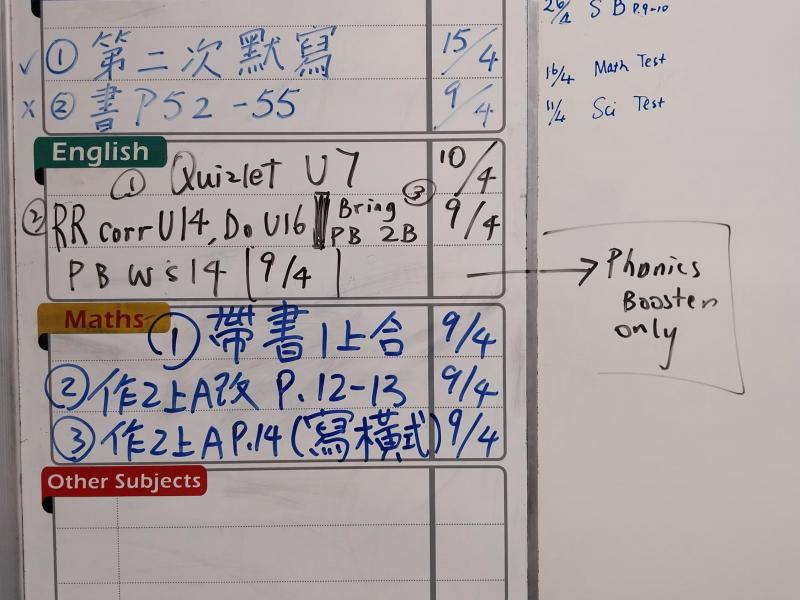 ✓ ① 第二次默寫 15/4
x ② 書P52-55 9/4
English
① Quizlet U7 10/4
② RR corr U14, Do U16 ③ Bring PB 2B 9/4
PB WS14 9/4
Maths
① 帶書1上合 9/4
② 作2上A改 P.12-13 9/4
③ 作2上A P.14 (寫橫式) 9/4
Other Subjects
S B P.9-10
16/4 Math Test
11/4 Sci Test
Phonics
Booster
only